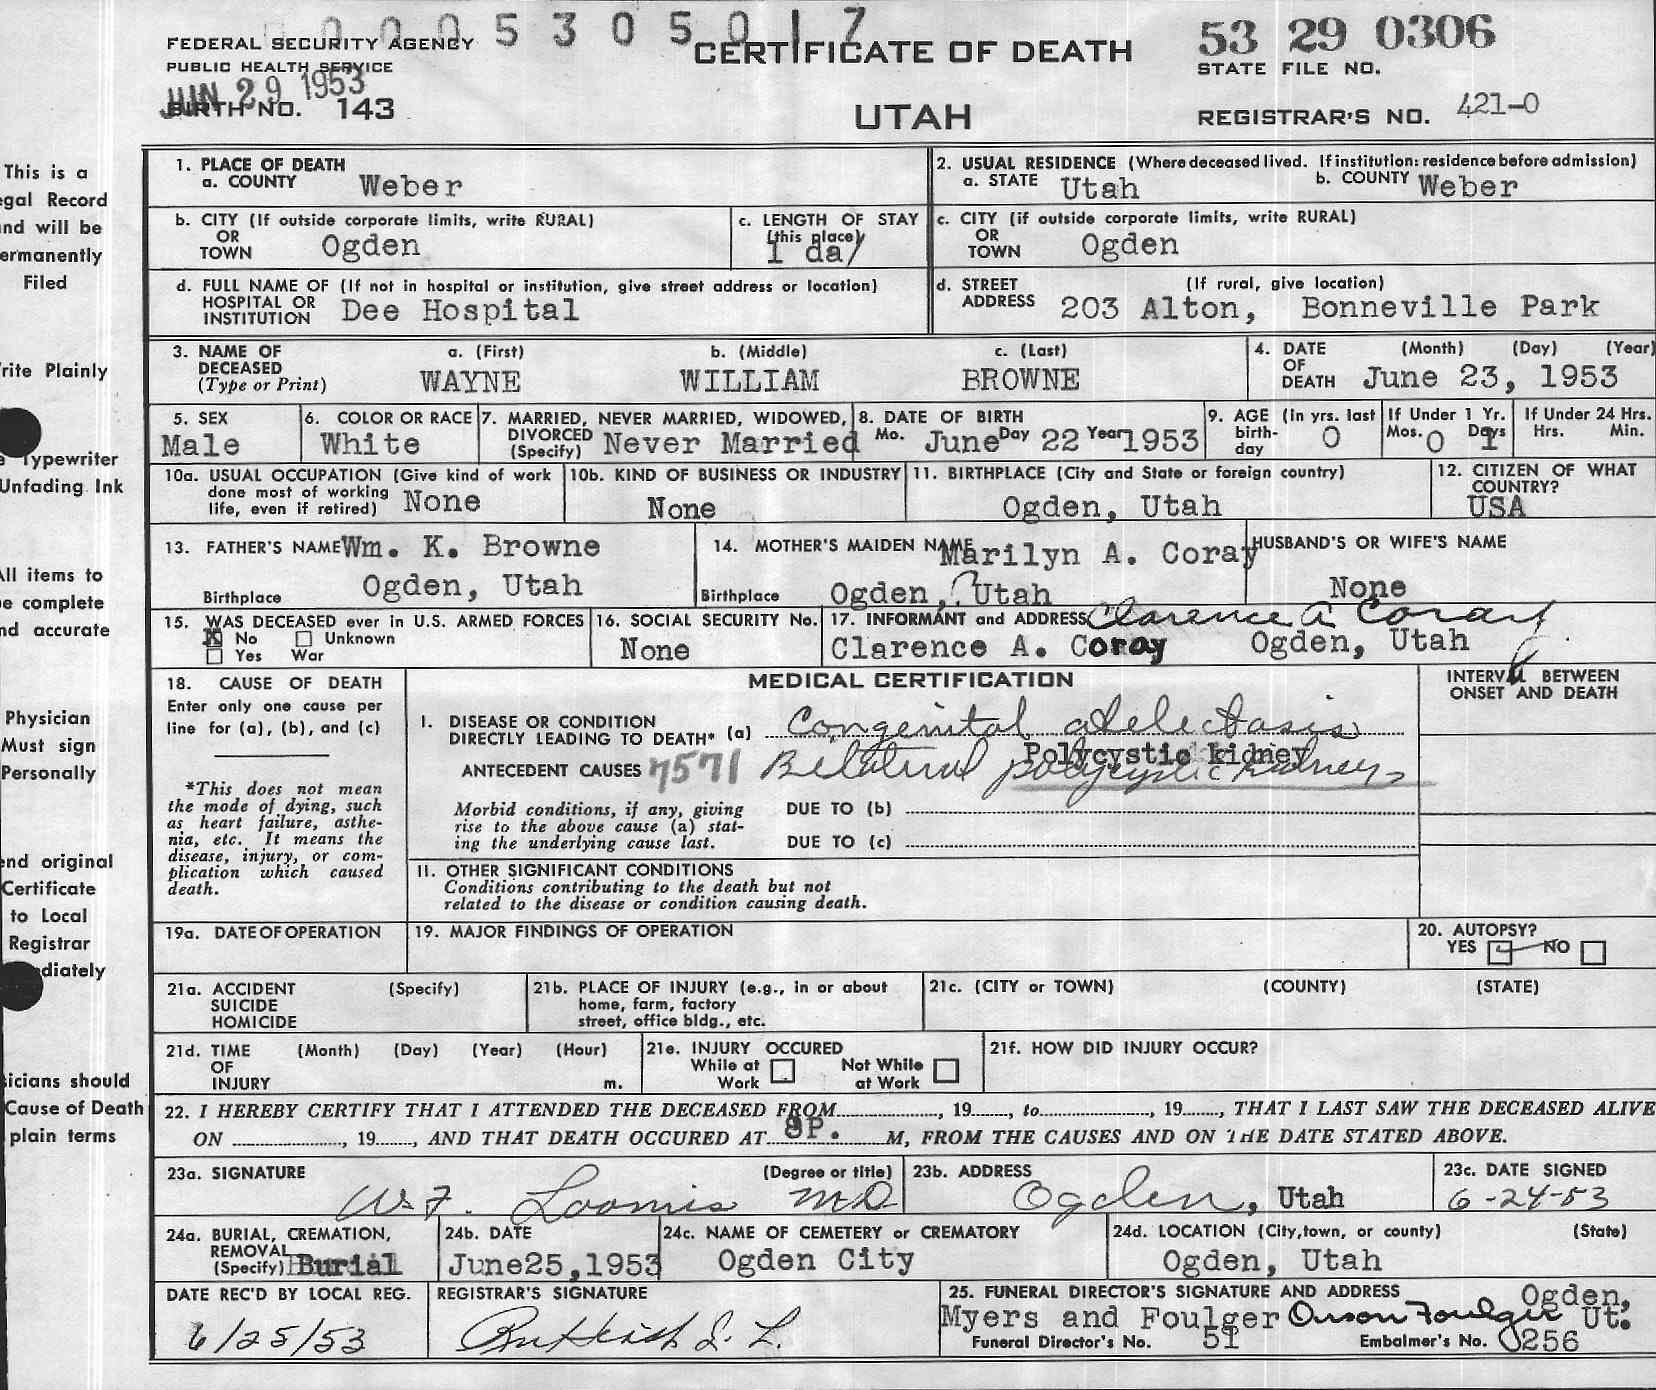 0 0 0 5 3 0 5 0 1 7
FEDERAL SECURITY AGENCY
PUBLIC HEALTH SERVICE
JUN 29 1953
BIRTH NO. 143
CERTIFICATE OF DEATH
UTAH
53 29 0306
STATE FILE NO.
REGISTRAR'S NO. 421-0
This is a
egal Record
nd will be
ermanently
Filed
rite Plainly
e Typewriter
Unfading Ink
All items to
be complete
nd accurate
Physician
Must sign
Personally
end original
Certificate
to Local
Registrar
diately
icians should
Cause of Death
plain terms
1. PLACE OF DEATH
a. COUNTY Weber
2. USUAL RESIDENCE (Where deceased lived. If institution: residence before admission)
a. STATE Utah b. COUNTY Weber
b. CITY (If outside corporate limits, write RURAL)
OR
TOWN Ogden
c. LENGTH OF STAY
(this place)
1 day
c. CITY (if outside corporate limits, write RURAL)
OR
TOWN Ogden
d. FULL NAME OF (If not in hospital or institution, give street address or location)
HOSPITAL OR
INSTITUTION Dee Hospital
d. STREET (If rural, give location)
ADDRESS 203 Alton, Bonneville Park
3. NAME OF DECEASED (Type or Print)
a. (First) b. (Middle) c. (Last)
WAYNE WILLIAM BROWNE
4. DATE OF DEATH (Month) (Day) (Year)
June 23, 1953
5. SEX
Male
6. COLOR OR RACE
White
7. MARRIED, NEVER MARRIED, WIDOWED,
DIVORCED
(Specify) Never Married
8. DATE OF BIRTH
Mo. June Day 22 Year 1953
9. AGE (In yrs. last
birth-
day 0
If Under 1 Yr.
Mos. 0 Days 1
If Under 24 Hrs.
Hrs. Min.
10a. USUAL OCCUPATION (Give kind of work
done most of working
life, even if retired) None
10b. KIND OF BUSINESS OR INDUSTRY
None
11. BIRTHPLACE (City and State or foreign country)
Ogden, Utah
12. CITIZEN OF WHAT
COUNTRY?
USA
13. FATHER'S NAME Wm. K. Browne
Birthplace Ogden, Utah
14. MOTHER'S MAIDEN NAME Marilyn A. Coray
Birthplace Ogden, Utah
HUSBAND'S OR WIFE'S NAME
None
15. WAS DECEASED ever in U.S. ARMED FORCES
X No Unknown
Yes War
16. SOCIAL SECURITY No.
None
17. INFORMANT and ADDRESS Clarence A Coray
Clarence A. Coray Ogden, Utah
18. CAUSE OF DEATH
Enter only one cause per
line for (a), (b), and (c)
*This does not mean
the mode of dying, such
as heart failure, asthe-
nia, etc. It means the
disease, injury, or com-
plication which caused
death.
MEDICAL CERTIFICATION
INTERVAL BETWEEN
ONSET AND DEATH
I. DISEASE OR CONDITION
DIRECTLY LEADING TO DEATH* (a) Congenital atelectasis
Polycystic kidney
ANTECEDENT CAUSES 7571 Bilateral polycystic kidneys
Morbid conditions, if any, giving
rise to the above cause (a) stat-
ing the underlying cause last.
DUE TO (b)
DUE TO (c)
11. OTHER SIGNIFICANT CONDITIONS
Conditions contributing to the death but not
related to the disease or condition causing death.
19a. DATE OF OPERATION
19. MAJOR FINDINGS OF OPERATION
20. AUTOPSY?
YES NO
21a. ACCIDENT (Specify)
SUICIDE
HOMICIDE
21b. PLACE OF INJURY (e.g., in or about
home, farm, factory
street, office bldg., etc.
21c. (CITY or TOWN) (COUNTY) (STATE)
21d. TIME (Month) (Day) (Year) (Hour)
OF
INJURY m.
21e. INJURY OCCURED
While at Work Not While at Work
21f. HOW DID INJURY OCCUR?
22. I HEREBY CERTIFY THAT I ATTENDED THE DECEASED FROM , 19 , to , 19 , THAT I LAST SAW THE DECEASED ALIVE
ON , 19 , AND THAT DEATH OCCURED AT 8P. M, FROM THE CAUSES AND ON THE DATE STATED ABOVE.
23a. SIGNATURE (Degree or title)
W.F. Loomis MD
23b. ADDRESS
Ogden, Utah
23c. DATE SIGNED
6-24-53
24a. BURIAL, CREMATION,
REMOVAL
(Specify) Burial
24b. DATE
June25,1953
24c. NAME OF CEMETERY or CREMATORY
Ogden City
24d. LOCATION (City,town, or county) (State)
Ogden, Utah
DATE REC'D BY LOCAL REG.
6/25/53
REGISTRAR'S SIGNATURE
25. FUNERAL DIRECTOR'S SIGNATURE AND ADDRESS Ogden,
Myers and Foulger Orson Foulger Ut.
Funeral Director's No. 51 Embalmer's No. 256